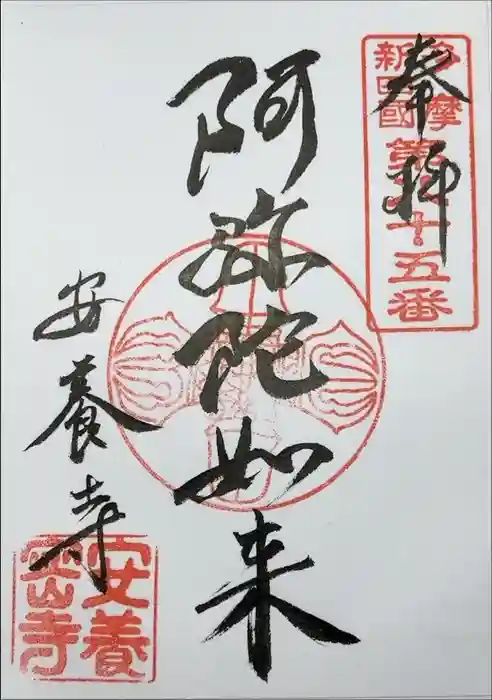 奉拝
第六十五番
阿弥陀如来
安養寺
安養
密寺